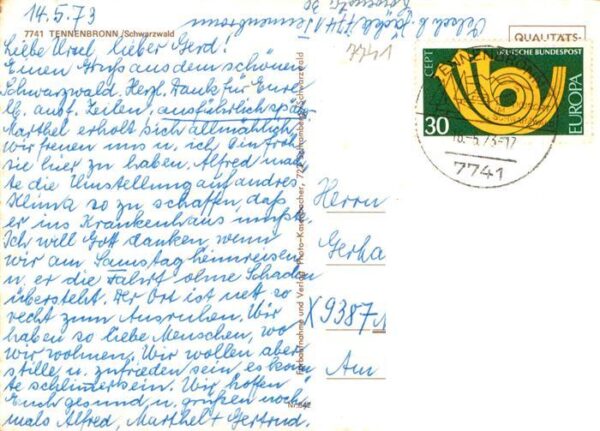 14.5.73
7741 TENNENBRONN/Schwarzwald
Liebe Ursel lieber Gerd!
Einen Gruß aus dem schönen
Schwarzwald. Herzl. Dank für Eure
lb. ausf. Zeilen, ausführlich später.
Marthel erholt sich allmählich,
wir freuen uns u. ich bin froh
sie hier zu haben. Alfred mach-
te die Umstellung auf andres
Klima so zu schaffen, daß
er ins Krankenhaus mußte.
Ich will Gott danken, wenn
wir am Samstag heimreisen
u. er die Fahrt ohne Schaden
übersteht. Der Ort ist nett so
recht zum Ausruhen. Wir
haben so liebe Menschen, wo
wir wohnen. Wir wollen aber
stille u. zufrieden sein, es könn
te schlimmer sein. Wir hoffen
Euch gesund u. grüßen noch-
mals Alfred, Marthel + Gertrud.
Farbaufnahme und Verlag: Photo-Kastenbacher, Schramberg/Schwarzwald
QUALITÄTS-
CEPT
DEUTSCHE BUNDESPOST
EUROPA
30
TENNENBRONN
7741
Herrn
Gerha
X9387
Am